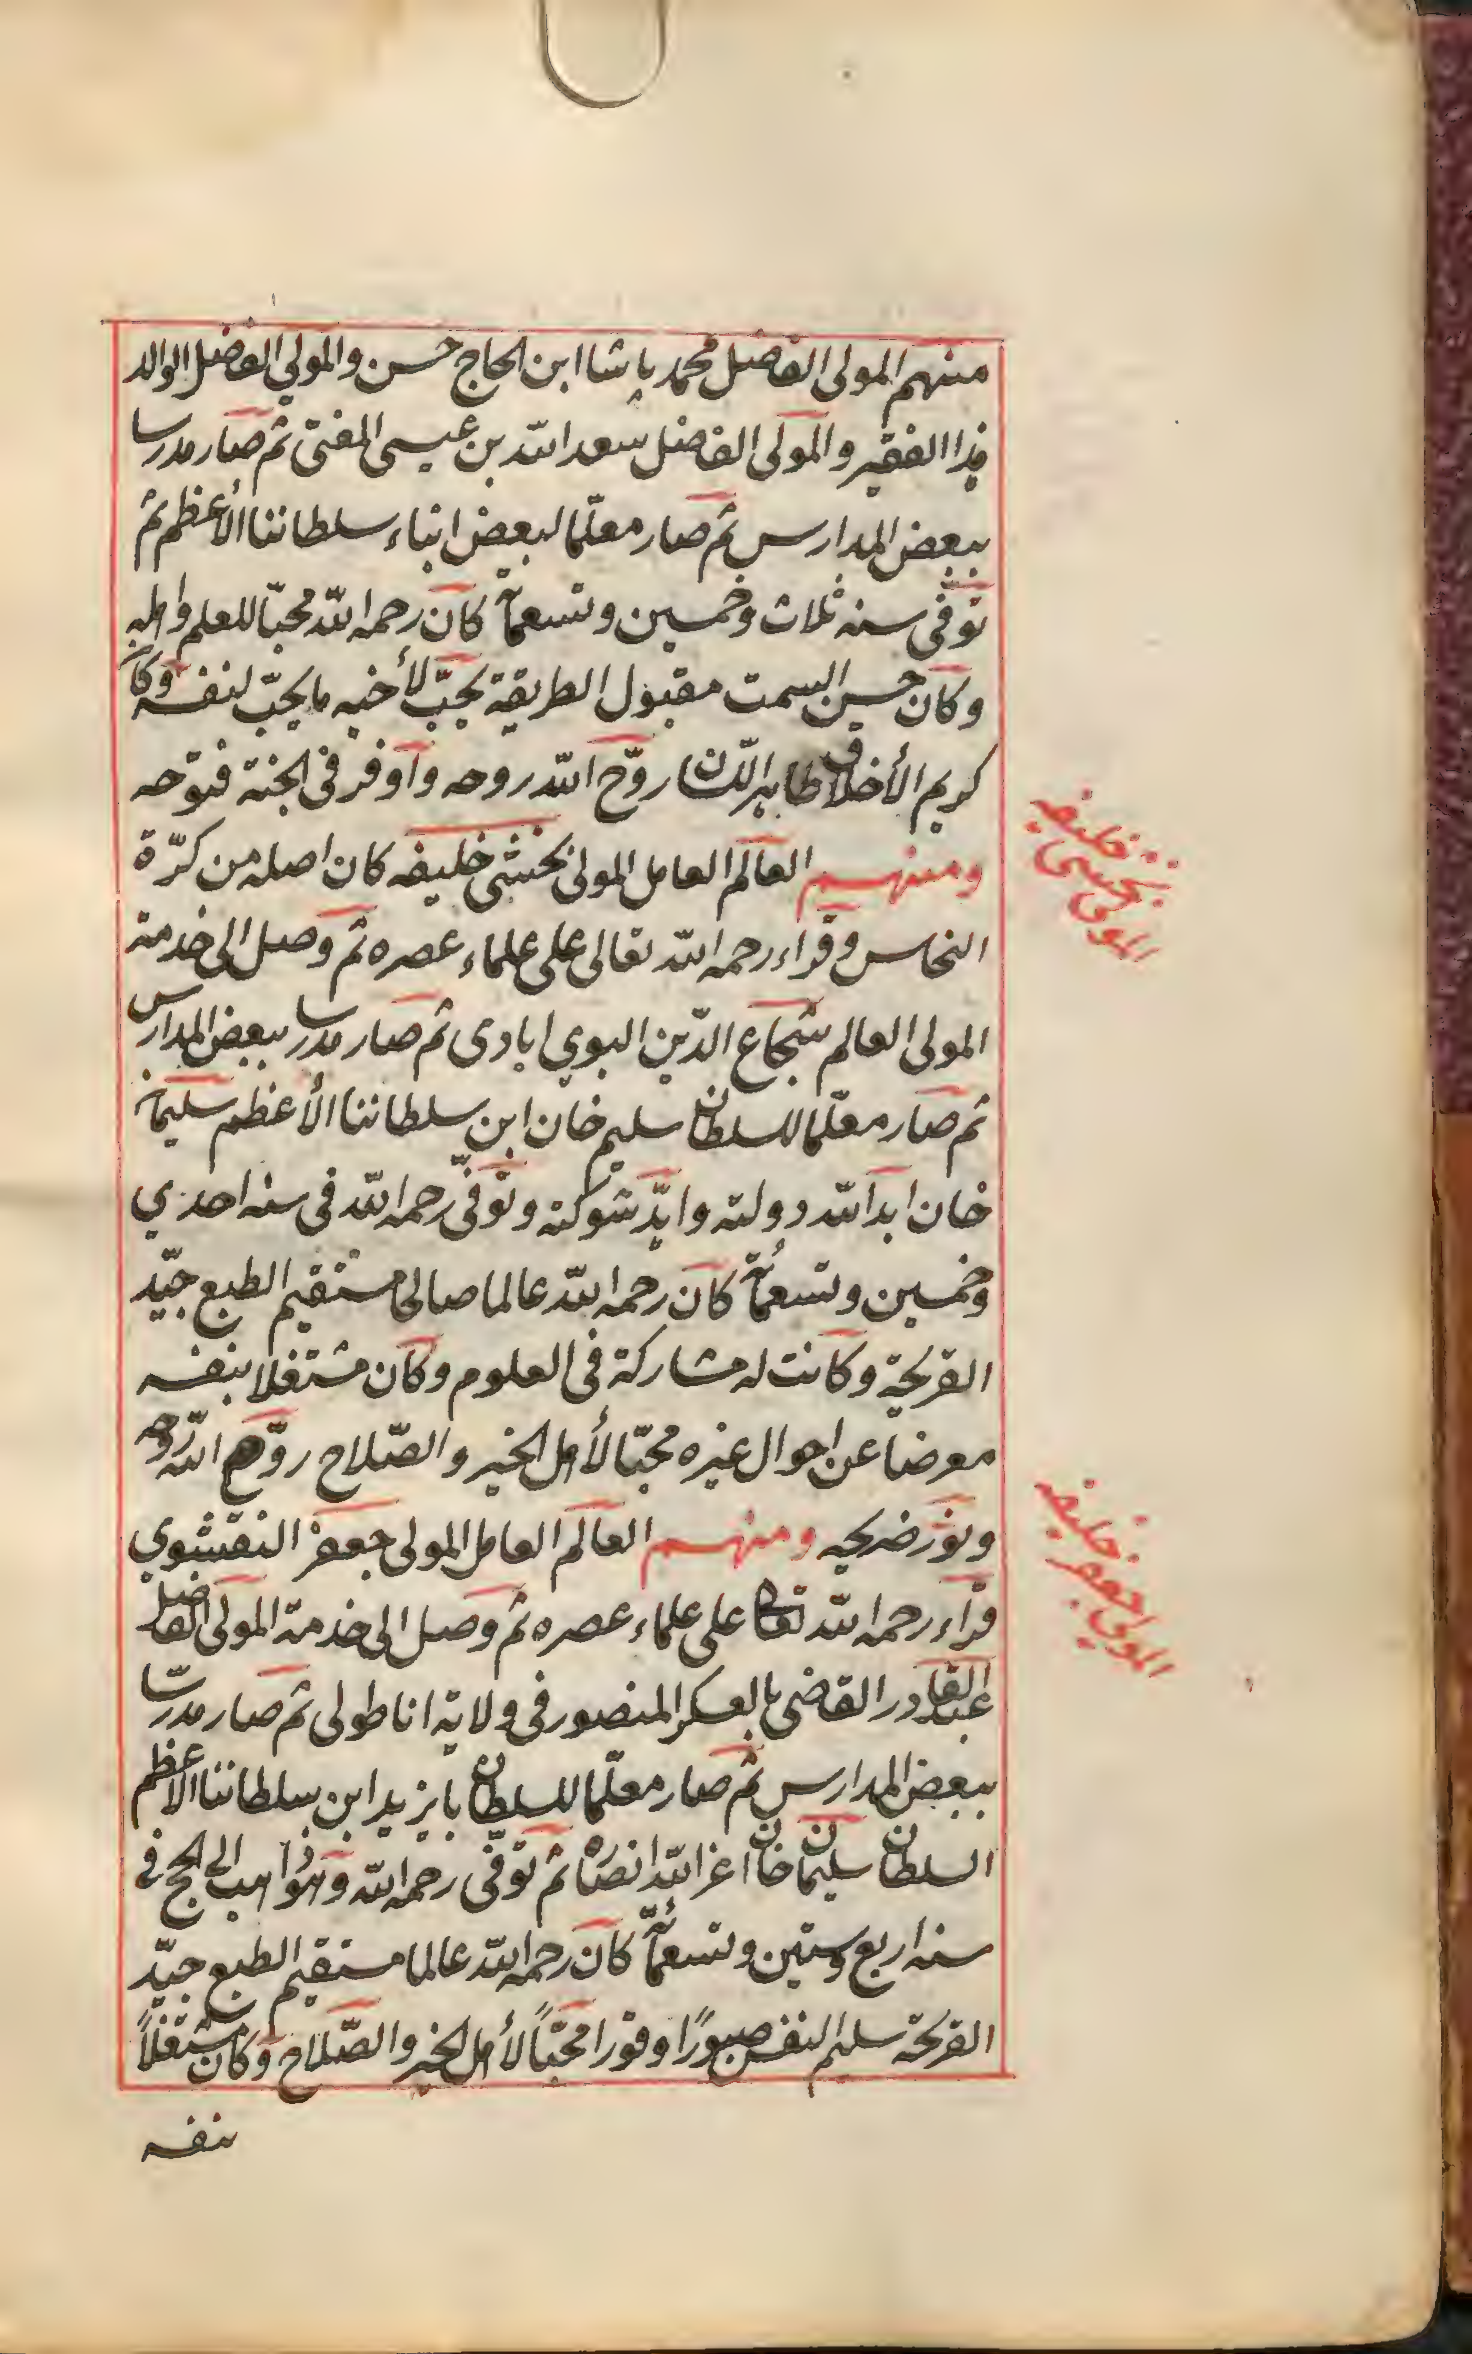 منهم المولى الفاضل محمد باشا ابن الحاج حسن والمولي الفاضل الوالد
هذا الفقير والمولى الفاضل سعد الله بن عيسى المفتى ثم صار مدرسا
ببعض المدارس ثم صار معلّما لبعض ابناء سلطاننا الأعظم ثم
توفّى سنه ثلاث وخمسين وتسعمآ كان رحمه الله محبّا للعلم واهله
وكان حسن السمت مقبول الطريقة يحبّ لأخيه ما يحبّ لنفسه وكان
كريم الأخلاق طاهر اللسان روّح الله روحه وأوفر فى الجنة فتوحه
ومنهم العالم العامل المولى بخشى خليفه كان اصله من كرّة
النحاس وقراء رحمه الله تعالى على علماء عصره ثم وصل الى خدمة
المولى العالم شجاع الدّين البوي ابادى ثم صار مدرسا ببعض المدارس
ثم صار معلّما للسلطان سليم خان ابن سلطاننا الأعظم سليمان
خان ابد الله دولته وايّد شوكته وتوّفى رحمه الله فى سنه احدي
وخمسين وتسعمأئة كان رحمه الله عالما صالحا مستقيم الطبع جيّد
القريحة وكانت له مشاركة فى العلوم وكان مشتغلا بنفسه
معرضا عن احوال غيره محبّا لأهل الخير والصّلاح روّح الله روحه
ونوّر ضريحه ومنهم العالم العامل المولى جعفر النقشوي
قراء رحمه الله تعالى على علماء عصره ثم وصل الى خدمة المولى الفاضل
عبد القادر القاضى بالعسكر المنصور فى ولاية اناطولى ثم صار مدرّسا
ببعض المدارس ثم صار معلّما للسلطان بايزيد ابن سلطاننا الأعظم
السلطان سليمان خان اعز الله انصاره ثم توّفى رحمه الله وهو ذاهب الى الحج فى
سنه اربع وستين وتسعمأئة كان رحمه الله عالما مستقيم الطبع جيّد
القريحة سليم النفس صبورًا وقورا محبّاً لأهل الخير والصّلاح وكان مشتغلاً
بنفسه
المولى بخشى خليفه
المولي جعفر خليفه